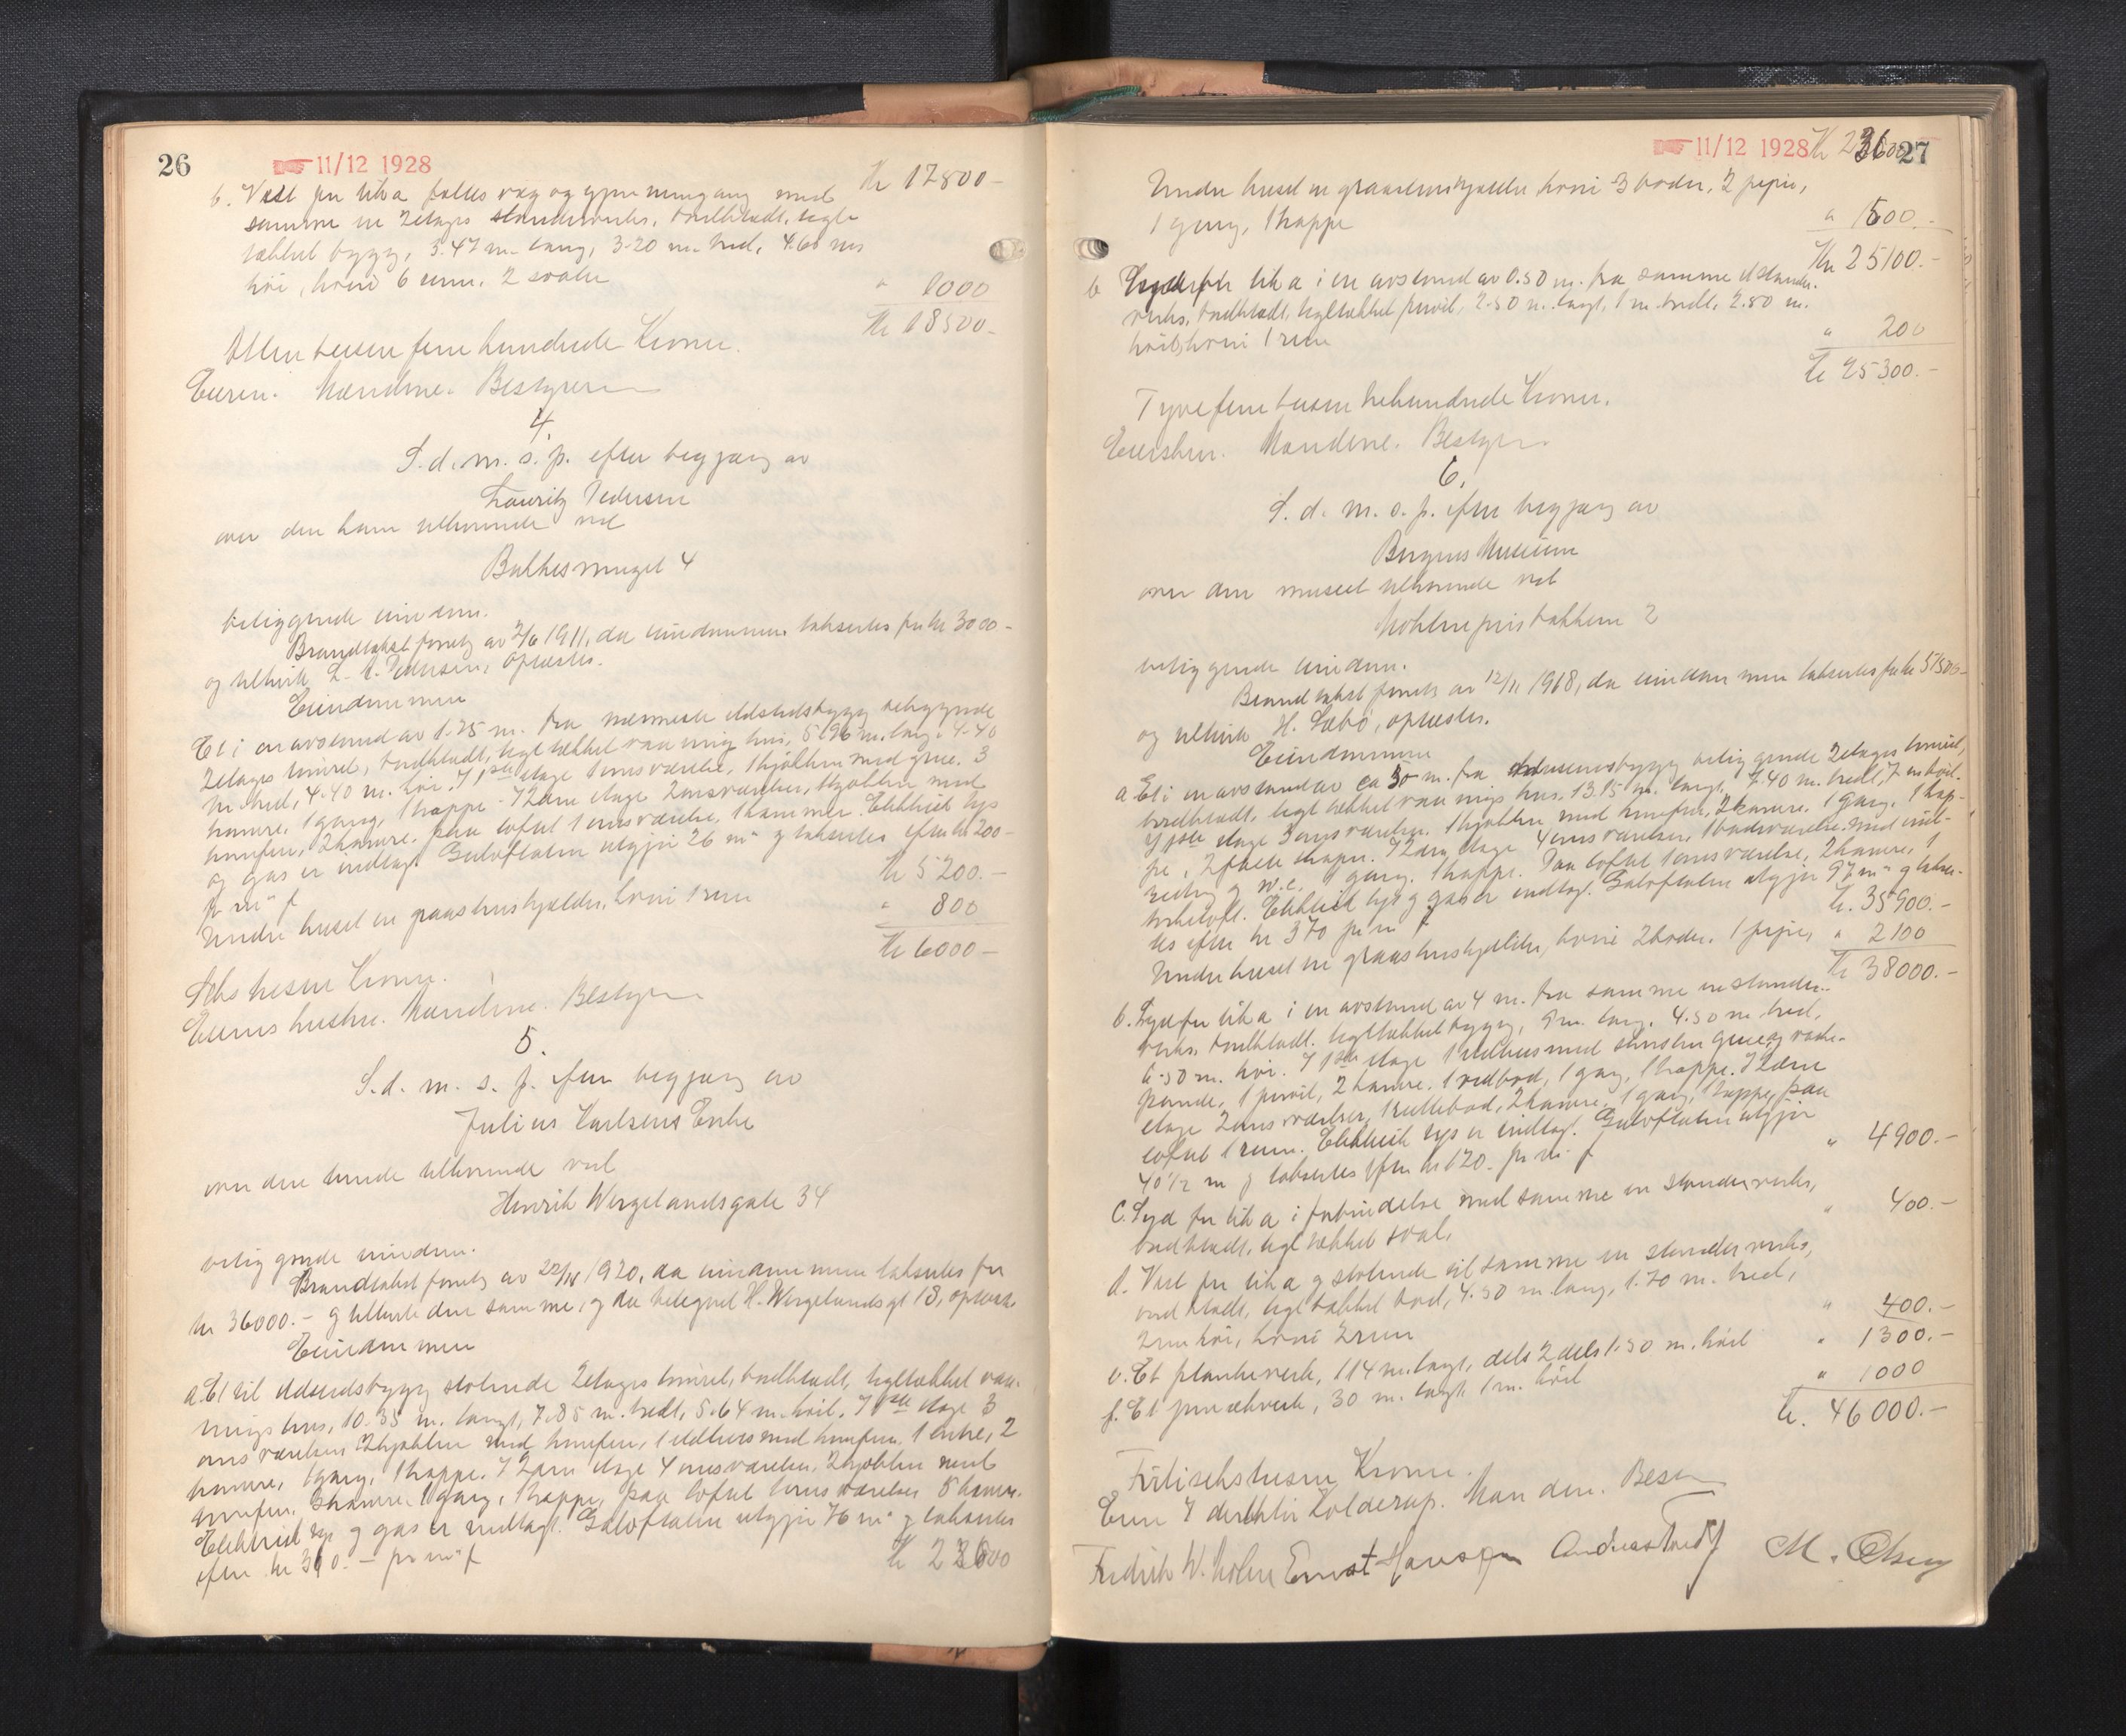 26
11/12 1928
Kr 17800-
b. Vest for lit. a fælles væg og gjennemgang med
samme en 2etages stænderverks, bordklædt, tegl-
tækket bygg, 3.47 m. lang, 3.20 m. bred, 4.60 m.
høi, hvori 6 rum, 2 svaler
Kr 18500-
Atten tusen fem hundrede Kroner.
Eieren. Mændene. Bestyreren
4.
S. d. m. s. p. efter begjæring av
Lauritz Pedersen
over den ham tilhørende ved
Bakkesmuget 4
beliggende eiendom.
Brandtakst foretat av 2/6 1911, da eiendommen taksertes for kr 3000-
og tilhørte L. Pedersen, oplæstes.
Eiendommen
Et i en avstand av 1.25 m. fra nærmeste ildstedsbygg beliggende
2etages tømret, bordklædt, tegltækket vaaningshus, 5.96 m. lang, 4.40
m. bred, 4.40 m. høi. I 1ste etage 1 omsværelse, 1 kjøkken med grue, 3
kamre, 1 gang, 1 trappe. I 2den etage 2 omsværelser, 1 kjøkken med
komfur, 2 kamre. Paa loftet 1 omsværelse, 1 kammer. Elektrisk lys
og gas er indlagt. Gulvflaten utgjør 26 m² og taksertes efter kr 200-
pr m²
Kr 5200.-
Under huset en graastenskjælder, hvori 1 rum
" 800
Kr 6000-
Seks tusen Kroner.
Eierens hustru. Mændene. Bestyreren
5.
S. d. m. s. p. efter begjæring av
Julius Karlsens Enke
over den hende tilhørende ved
Henrik Wergelandsgate 34
beliggende eiendom.
Brandtakst foretat av 22/11 1920, da eiendommen taksertes for
kr 36000.- og tilhørte den samme, og da betegnet H. Wergelandsgt 18, oplæstes
Eiendommen
a. Et til ildstedsbygg støtende 2etages tømret, bordklædt, tegltækket vaa-
ningshus, 10.35 m. langt, 7.85 m. bredt, 5.64 m. høit. I 1ste etage 3
omsværelser, 2 kjøkken med komfur, 1 ildhus med komfur, 1 entre, 2
kamre, 1 gang, 1 trappe. I 2den etage 4 omsværelser, 2 kjøkken med
komfur, 3 kamre, 1 gang, 1 trappe, paa loftet 1 omsværelse 5 kamre.
Elektrisk lys og gas er indlagt. Gulvflaten utgjør 76 m² og taksertes
efter kr 310.- pr m²
Kr 23600
27
11/12 1928
Kr 23600
Under huset en graastenskjælder hvori 3 boder, 2 piper,
1 gang, 1 trappe
" 1500.-
Kr 25100.-
b Syd for lit a i en avstand av 0.50 m. fra samme et stænder-
verks, bordklædt, tegltækket privet, 2.50 m. langt, 1 m. bredt, 2.80 m.
høit, hvori 1 rum
" 200
Kr 25300.-
Tyvefem tusen trehundrede Kroner.
Eiersken. Mændene. Bestyreren
6.
S. d. m. s. p. efter begjæring av
Bergens Museum
over den museet tilhørende ved
Møhlenprisbakken 2
beliggende eiendom.
Brandtakst foretat av 12/11 1918, da eiendommen taksertes for kr 57500-
og tilhørte H. Sæbø, oplæstes.
Eiendommen
a Et i en avstand av ca 30 m. fra Museumsbygg beliggende 2etages tømret,
bordklædt, tegltækket vaaningshus, 13.15 m. langt, 7.40 m. bredt, 7 m. høit.
I 1ste etage 3 omsværelser, 1 kjøkken med komfur, 2 kamre, 1 gang, 1 trap-
pe, 2 faste skaper. I 2den etage 4 omsværelser, 1 badeværelse med ind-
redning og w.c., 1 gang, 1 trappe. Paa loftet 1 omsværelse, 2 kamre, 1
tørkeloft. Elektrisk lys og gas er indlagt. Gulvflaten utgjør 97 m² og takser-
tes efter kr 370 pr m²
Kr. 35900.-
Under huset en graastenskjælder, hvori 2 boder, 1 pipe,
" 2100
Kr 38000.-
b. Syd for lit a i en avstand av 4 m. fra samme en stænder-
verks, bordklædt, tegltækket bygg, 9 m. lang, 4.50 m. bred,
6.50 m. høi. I 1ste etage 1 ildhus med skorsten grue og vaske-
pande, 1 privet, 2 kamre, 1 vedbod, 1 gang, 1 trappe. I 2den
etage 2 omsværelser, 1 rullebod, 2 kamre, 1 gang, 1 trappe, paa
loftet 1 rum. Elektrisk lys er indlagt. Gulvflaten utgjør
40 1/2 m² og taksertes efter kr 120.- pr m²
" 4900.-
c. Syd for lit a i forbindelse med samme en stænderverks,
bordklædt, tegltækket sval.
" 400.-
d. Vest for lit a og støtende til samme en stænderverks,
bordklædt, tegltækket bod, 4.50 m. lang, 1.70 m. bred,
2 m høi, hvori 2 rum
" 400.-
e. Et plankeverk, 114 m. langt, dels 2 dels 1.50 m. høit
" 1300.-
f. Et sprinkelverk, 30 m. langt, 1 m. høit
" 1000
Kr. 46000.-
Førtiseks tusen Kroner.
Eieren v direktør Lolderup. Mændene. Best
Fredrik W. Holm Ernst Hansen M. Olsen